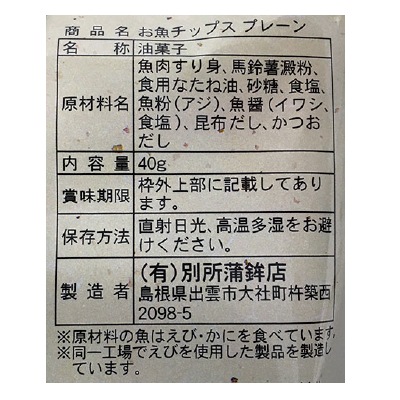 商品名 お魚チップス プレーン
名称 油菓子
原材料名 魚肉すり身、馬鈴薯澱粉、
食用なたね油、砂糖、食塩、
魚粉(アジ)、魚醤(イワシ、
食塩)、昆布だし、かつお
だし
内容量 40g
賞味期限 枠外上部に記載してあり
ます。
保存方法 直射日光、高温多湿をお避
けください。
製造者 (有)別所蒲鉾店
島根県出雲市大社町杵築西
2098-5
※原材料の魚はえび・かにを食べています。
※同一工場でえびを使用した製品を製造し
ています。